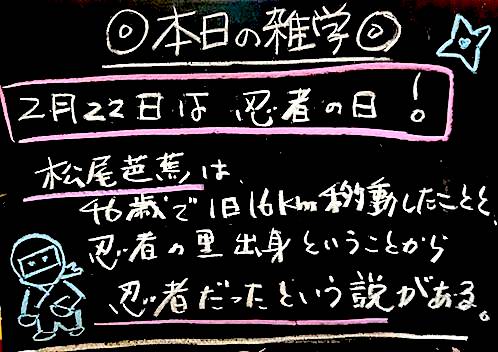 ◎本日の雑学◎
2月22日は 忍者の日!
松尾芭蕉は、
46歳で1日16km移動したことと、
忍者の里出身ということから
忍者だったという説がある。